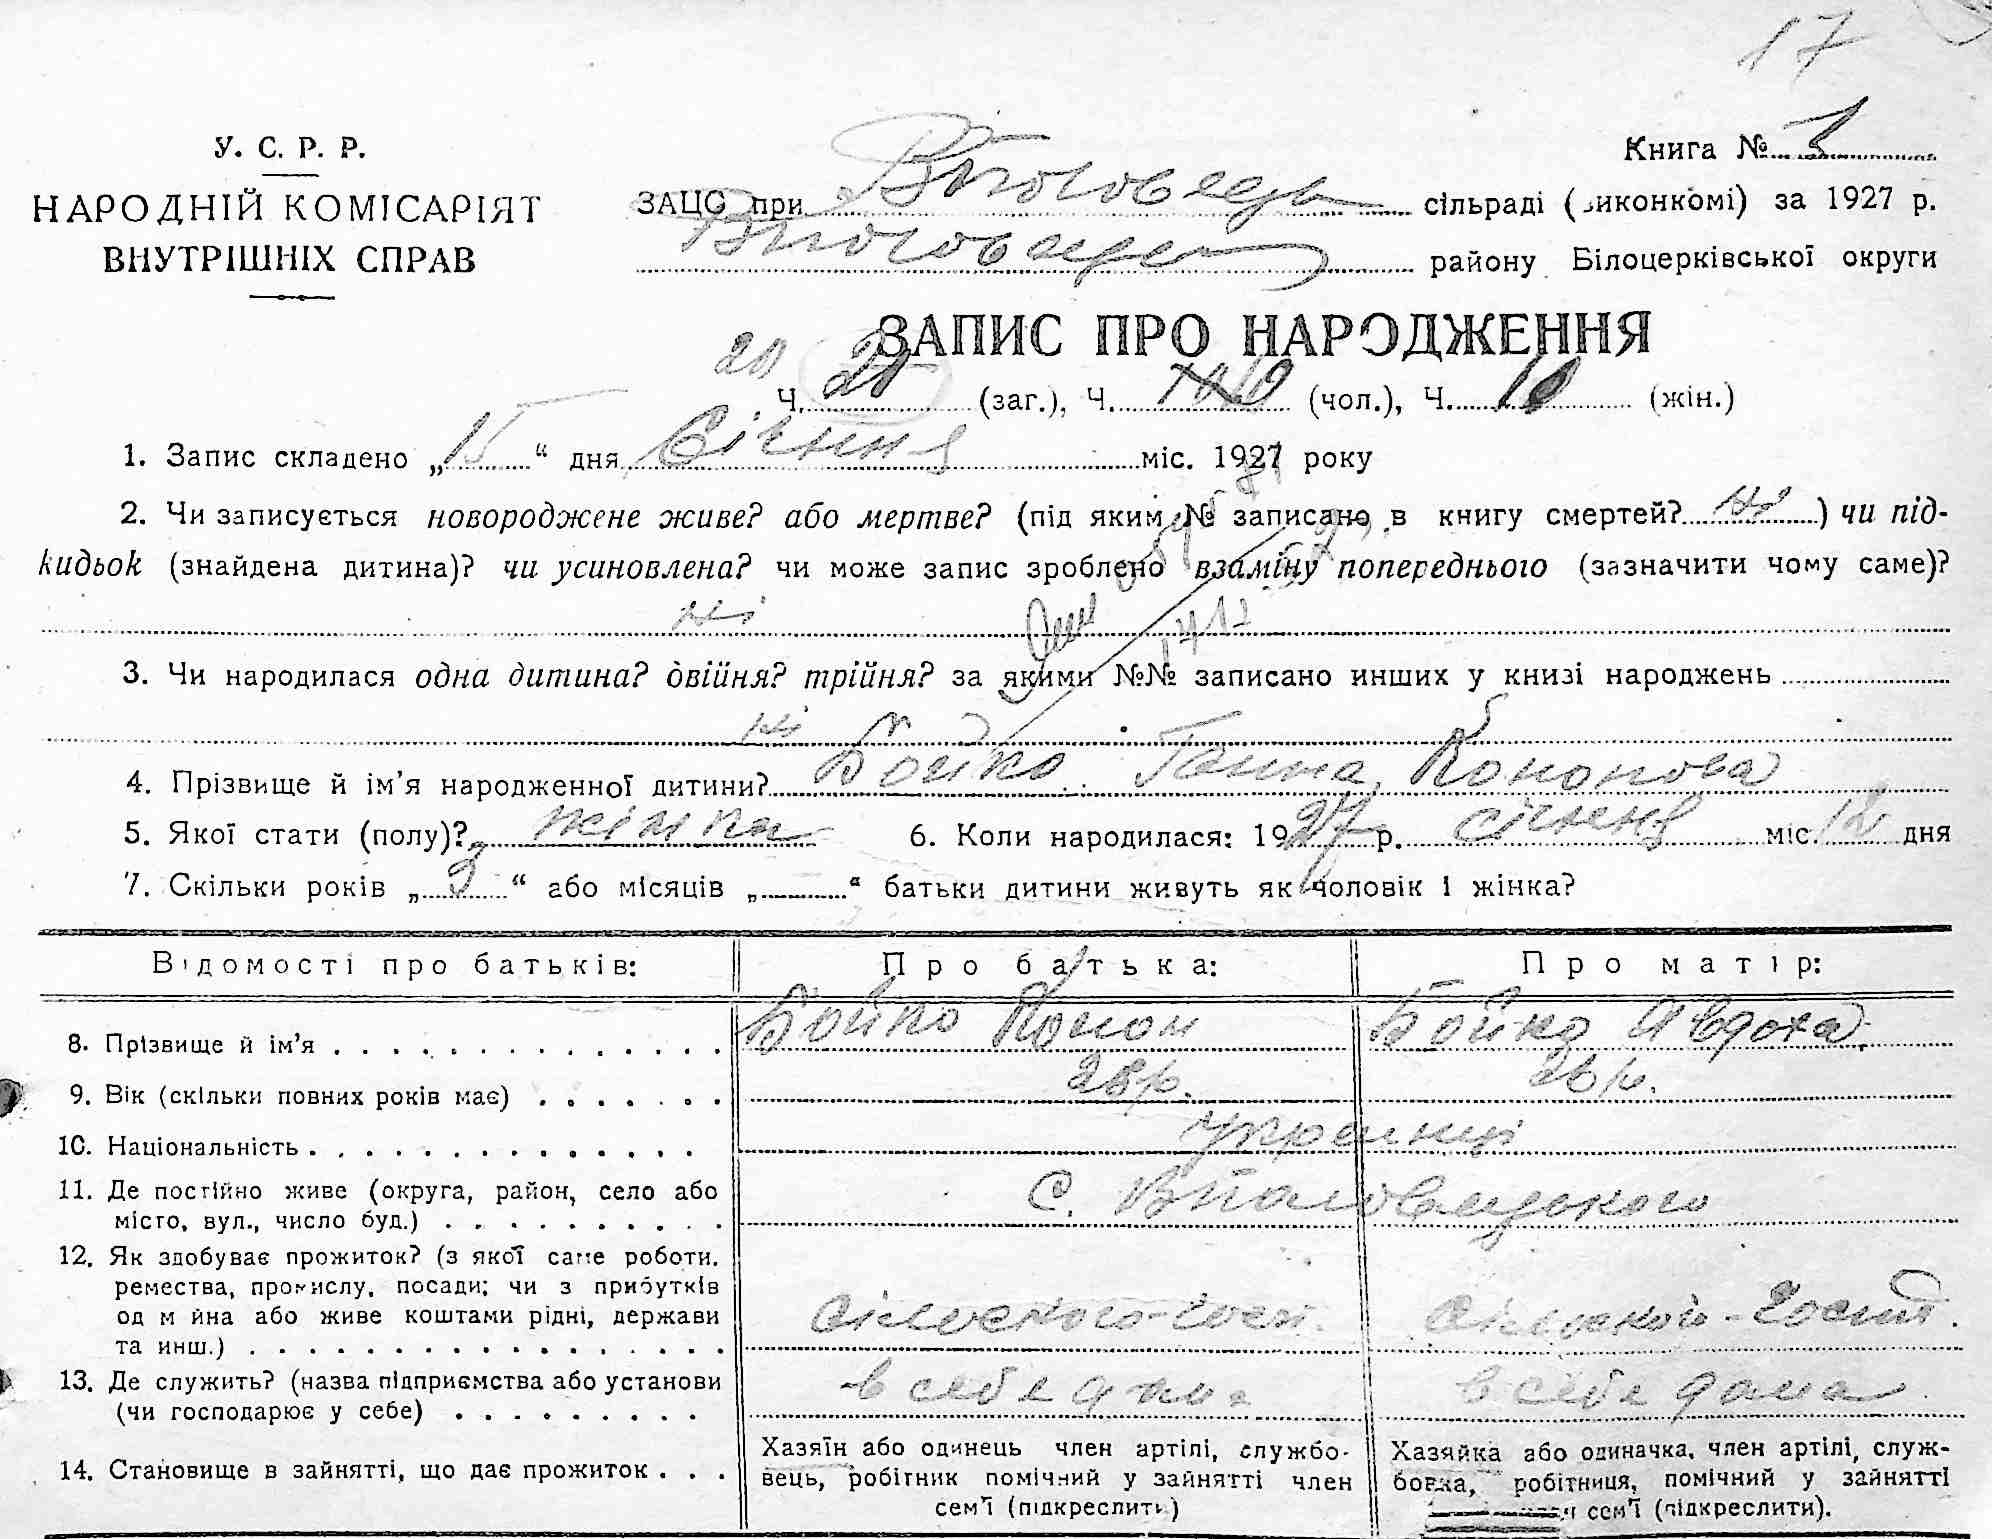 17
У. С. Р. Р.
НАРОДНІЙ КОМІСАРІЯТ
ВНУТРІШНІХ СПРАВ
Книга № 1
ЗАЦС при сільраді (виконкомі) за 1927 р.
району Білоцерківської округи
ЗАПИС ПРО НАРОДЖЕННЯ
20
Ч. 20 (заг.), Ч. (чол.), Ч. 10 (жін.)
1. Запис складено „15“ дня Січння міс. 1927 року
2. Чи записується новороджене живе? або мертве? (під яким № записано в книгу смертей? ні) чи під-
кидьок (знайдена дитина)? чи усиновлена? чи може запис зроблено взаміну попереднього (зазначити чому саме)?
ні
3. Чи народилася одна дитина? двійня? трійня? за якими №№ записано инших у книзі народжень
ні
4. Прізвище й ім’я народженної дитини? Бойко Ганна Кононова
5. Якої стати (полу)? жінка 6. Коли народилася: 1927 р. січння міс. 12 дня
7. Скільки років „3“ або місяців „“ батьки дитини живуть як чоловік і жінка?
Відомості про батьків: Про батька: Про матір:
8. Прізвище й ім’я Бойко Конон Бойко Явдоха
9. Вік (скільки повних років має) 28 р. 26 р.
10. Національність українці
11. Де постійно живе (округа, район, село або
місто, вул., число буд.) с.
12. Як здобуває прожиток? (з якої саме роботи,
ремества, промислу, посади; чи з прибутків
од майна або живе коштами рідні, держави
та инш.) Сільського-госп. Сільської-Госпд.
13. Де служить? (назва підприємства або установи
(чи господарює у себе) в себе дома в себе дома
14. Становище в зайнятті, що дає прожиток
Хазяїн або одинець член артілі, службо-
вець, робітник помічний у зайнятті член
сем’ї (підкреслить)
Хазяйка або одиначка, член артілі, служ-
бовка, робітниця, помічний у зайнятті
член сем’ї (підкреслити).